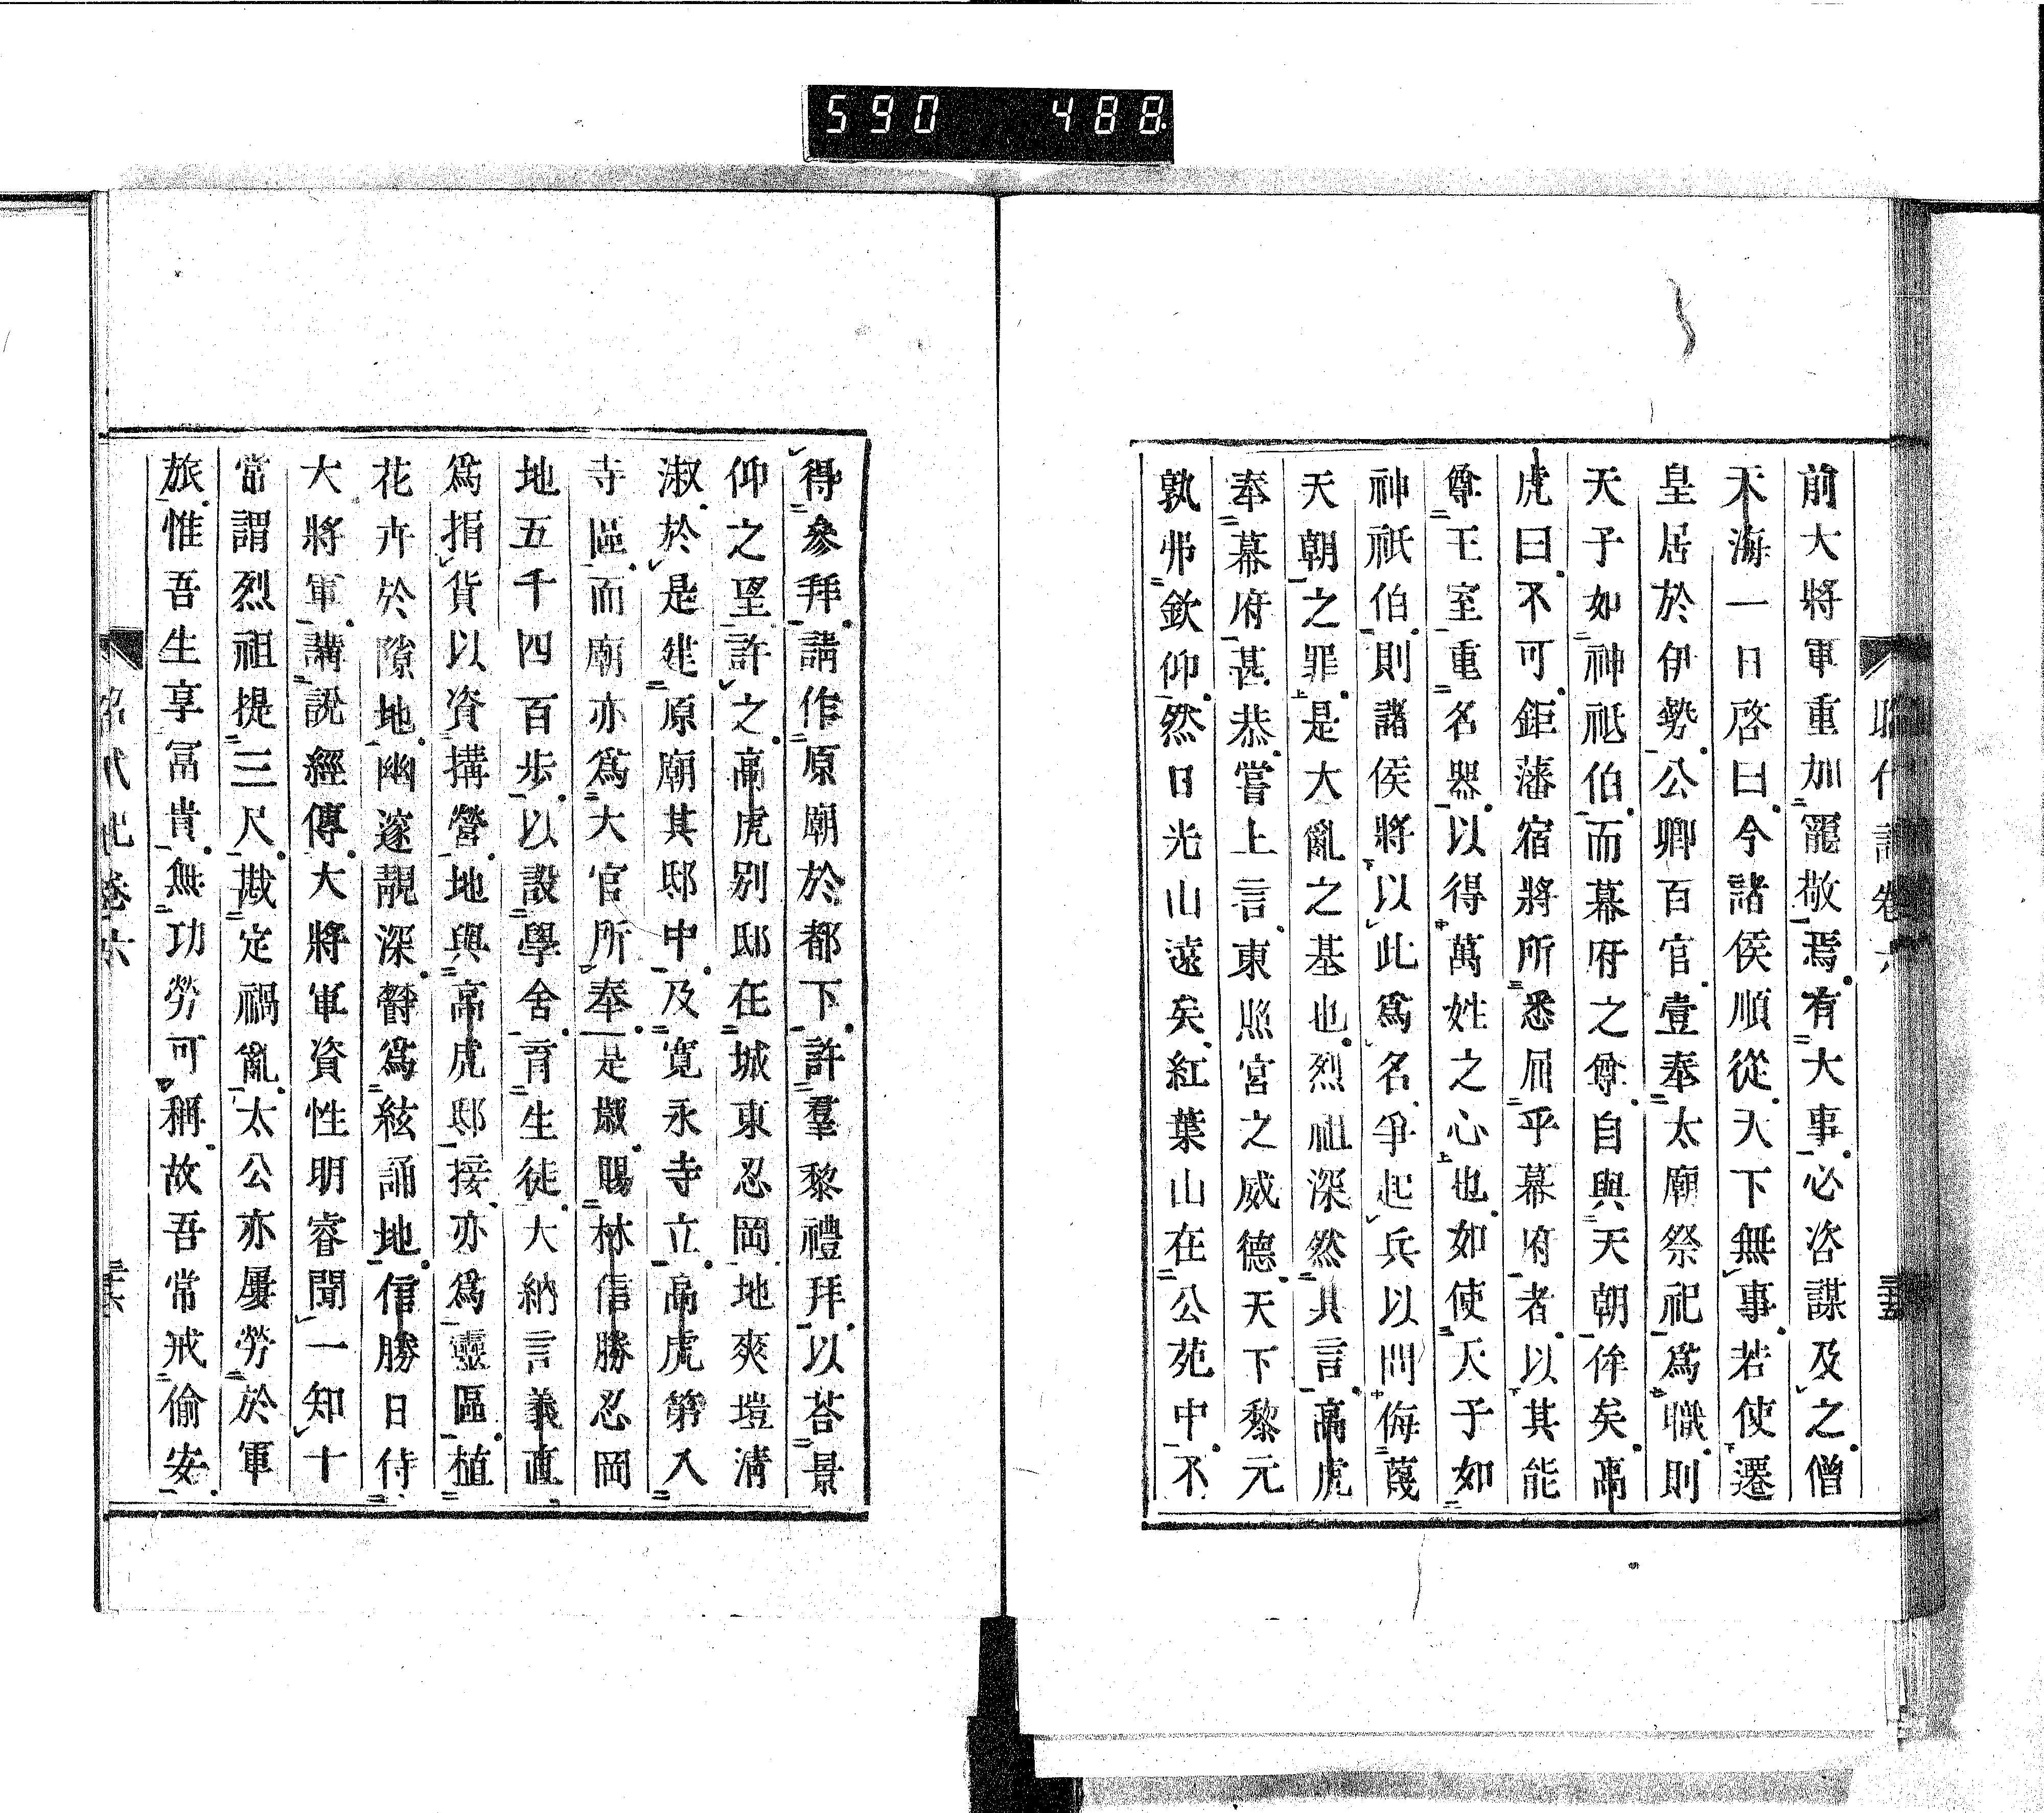 590 488
昭代記卷六 三五
前大將軍重加寵敬焉有大事必咨謀及之僧
天海一日啓曰今諸侯順從天下無事若使遷
皇居於伊勢公卿百官壹奉太廟祭祀爲職則
天子如神祗伯而幕府之尊自與天朝侔矣高
虎曰不可鉅藩宿將所悉屈乎幕府者以其能
尊王室重名器以得萬姓之心也如使天子如
神祇伯則諸侯將以此爲名爭起兵以問侮蔑
天朝之罪是大亂之基也烈祖深然其言高虎
奉幕府甚恭嘗上言東照宮之威德天下黎元
孰弗欽仰然日光山遠矣紅葉山在公苑中不
得參拜請作原廟於都下許羣黎禮拜以荅景
仰之望許之高虎別邸在城東忍岡地爽塏淸
淑於是建原廟其邸中及寛永寺立高虎第入
寺區而廟亦爲大官所奉是嶽賜林信勝忍岡
地五千四百歩以設學舍育生徒大納言義直
爲捐貨以資搆營地與高虎邸接亦爲靈區植
花卉於隙地幽邃靚深罄爲絃誦地信勝日侍
大將軍講說經傳大將軍資性明睿聞一知十
嘗謂烈祖提三尺戡定禍亂太公亦屢勞於軍
旅惟吾生享冨貴無功勞可稱故吾常戒偷安
昭代記卷六 三六